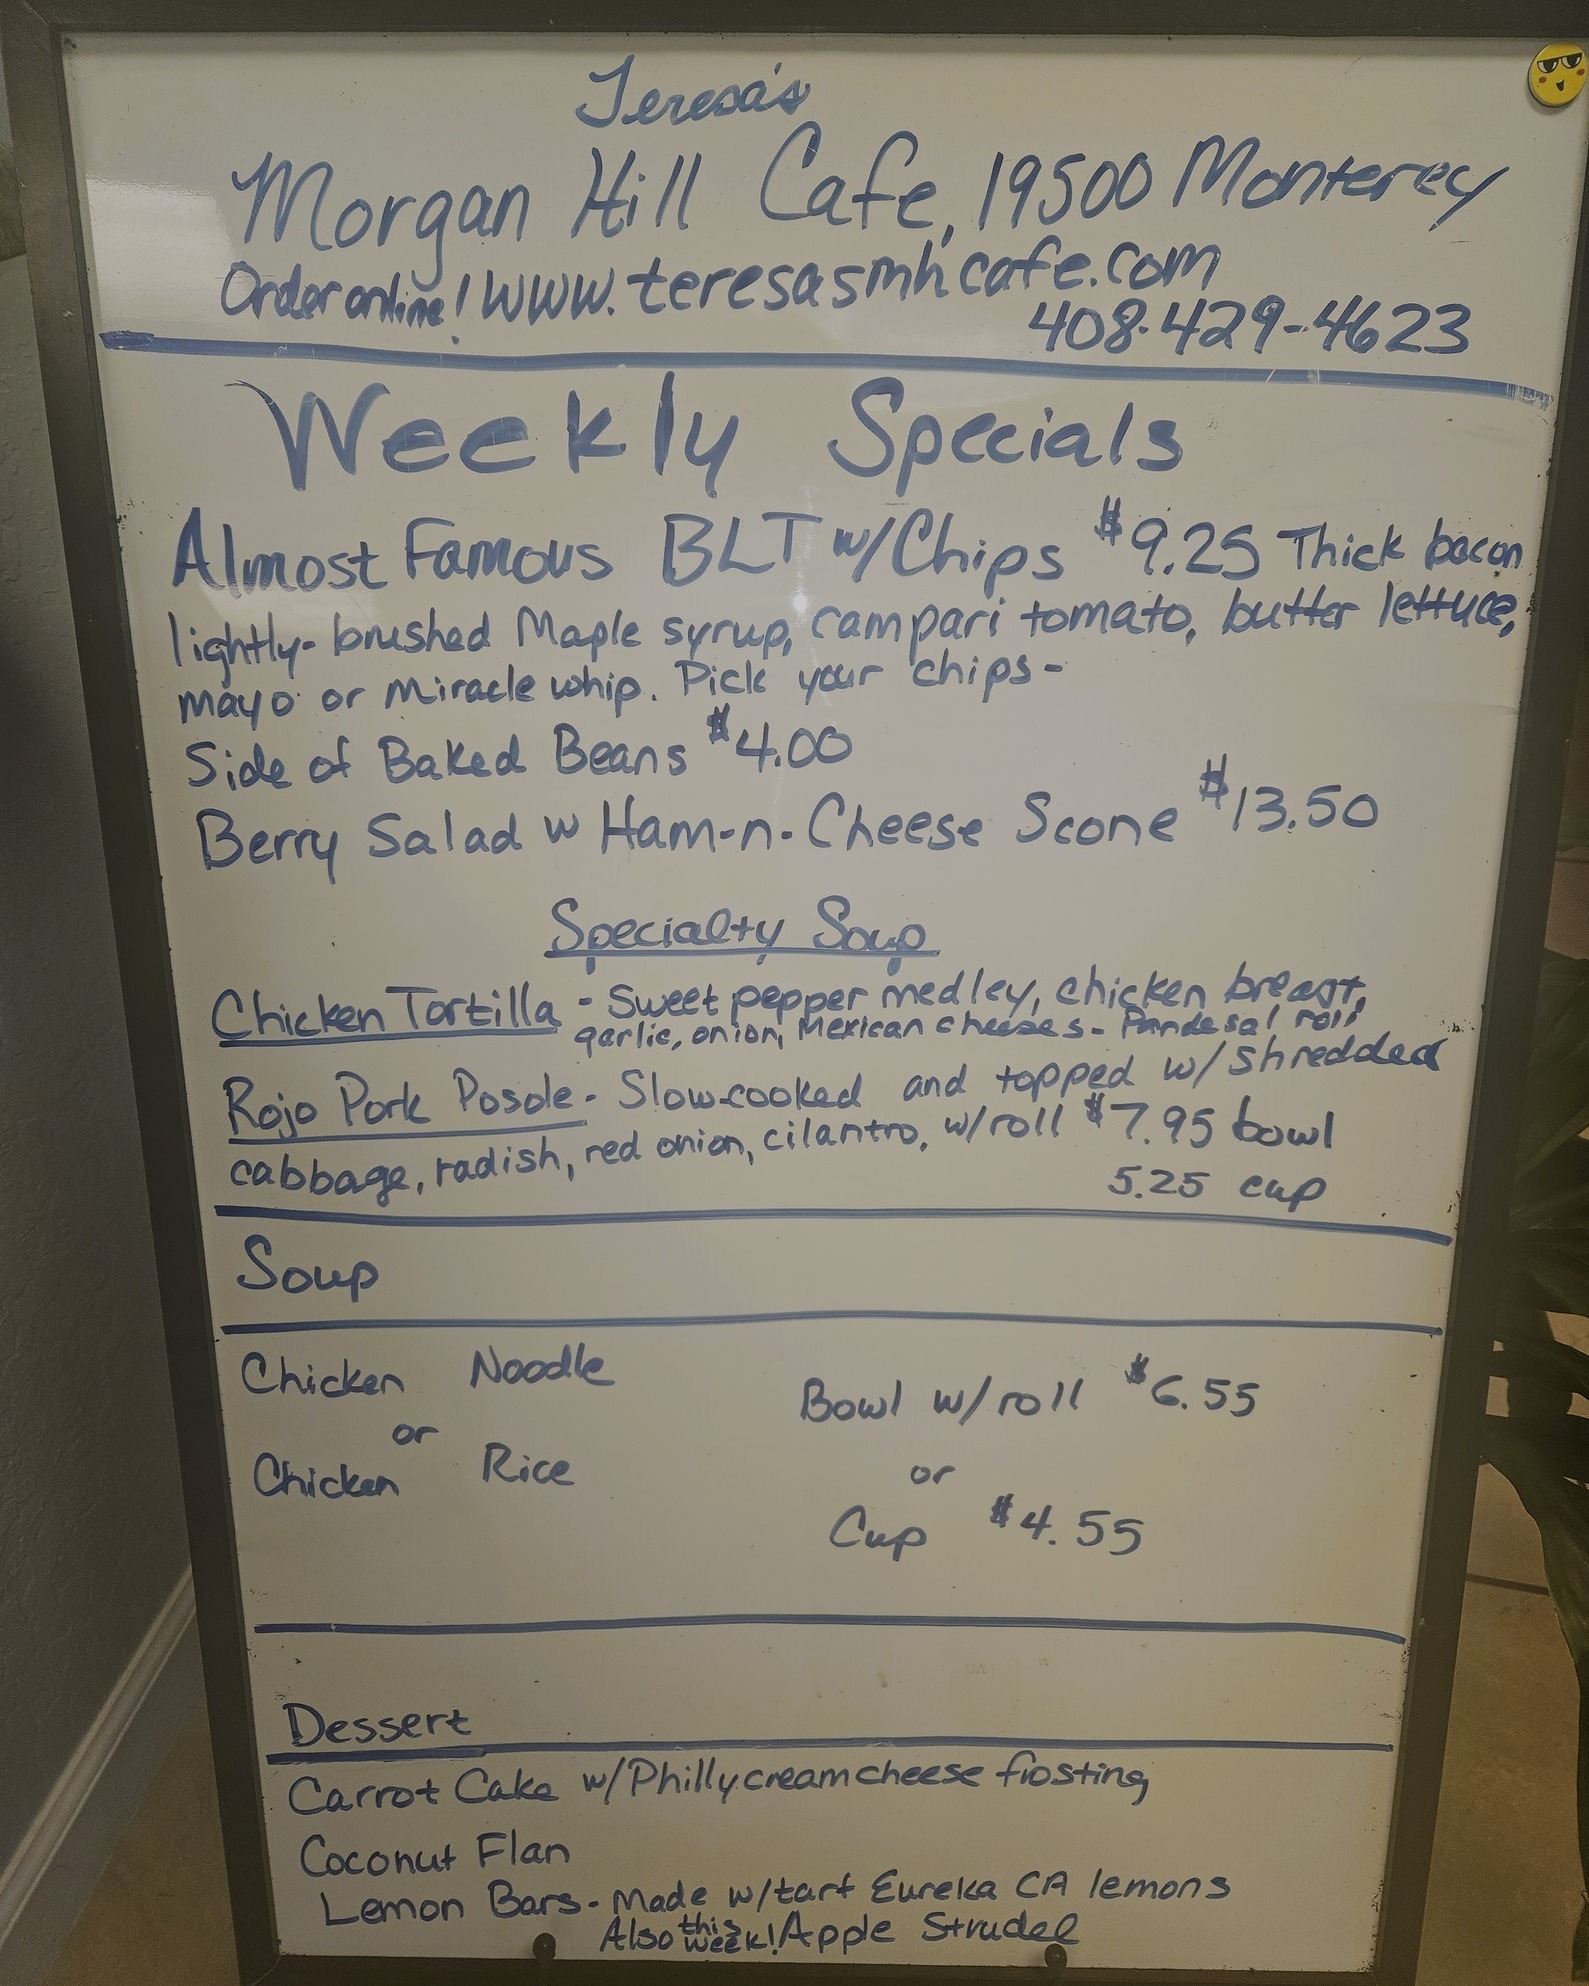 Teresa's
Morgan Hill Cafe, 19500 Monterey
Order online! www.teresasmhcafe.com
408-429-4623
Weekly Specials
Almost Famous BLT w/Chips $9.25 Thick bacon
lightly-brushed Maple syrup, campari tomato, butter lettuce,
mayo or miracle whip. Pick your chips-
Side of Baked Beans $4.00
Berry Salad w Ham-n-Cheese Scone $13.50
Specialty Soup
Chicken Tortilla - Sweet pepper medley, chicken breast,
garlic, onion, Mexican cheeses - Pandesal roll
Rojo Pork Posole - Slow-cooked and topped w/shredded
cabbage, radish, red onion, cilantro, w/roll $7.95 bowl
5.25 cup
Soup
Chicken Noodle
or
Chicken Rice
Bowl w/roll $6.55
or
Cup $4.55
Dessert
Carrot Cake w/Philly cream cheese frosting
Coconut Flan
Lemon Bars - Made w/tart Eureka CA lemons
Also this week! Apple Strudel